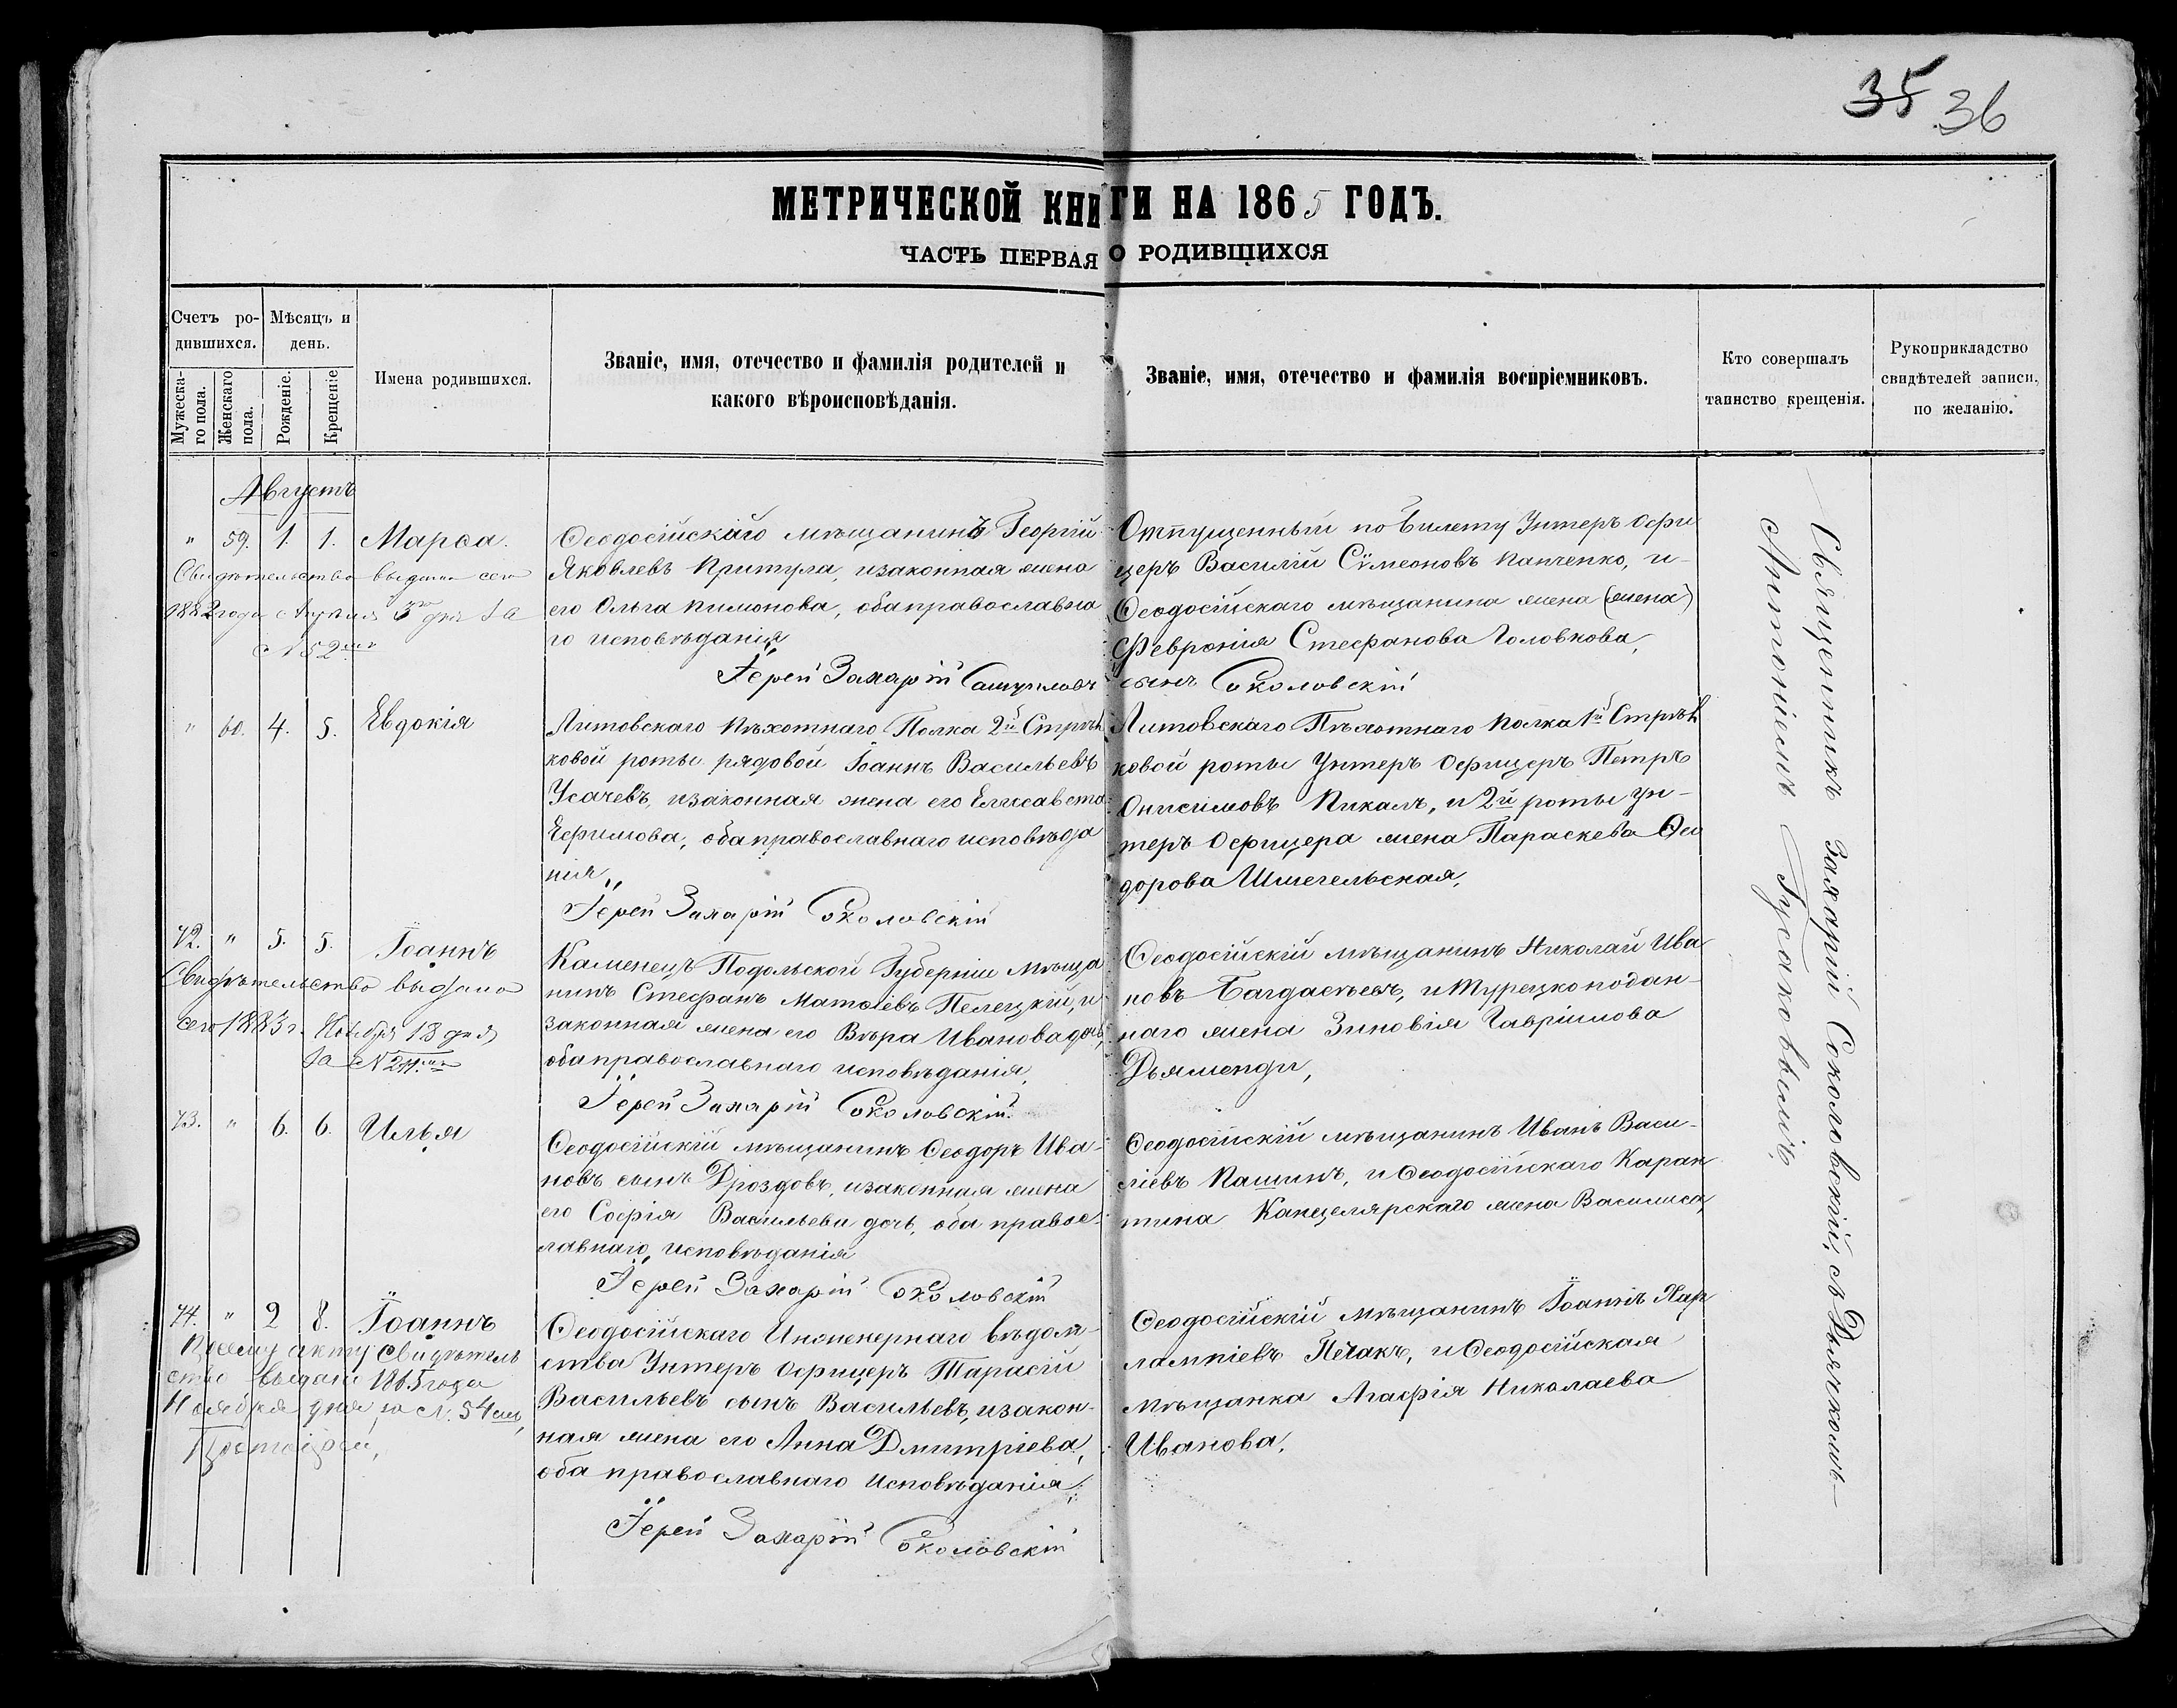 35 36
МЕТРИЧЕСКОЙ КНИГИ НА 1865 ГОДЪ.
ЧАСТЬ ПЕРВАЯ О РОДИВШИХСЯ
Счетъ ро-
дившихся.
Мужеска-
го пола.
Женскаго
пола.
Мѣсяцъ и
день.
Рожденіе.
Крещеніе
Имена родившихся.
Званіе, имя, отечество и фамилія родителей и
какого вѣроисповѣданія.
Званіе, имя, отечество и фамилія воспріемниковъ.
Кто совершалъ
таинство крещенія.
Рукоприкладство
свидѣтелей записи,
по желанію.
Августъ
" 59. 1. 1. Марѳа.
Свидѣтельство выдано сего
1882 года Апрѣля 3го дня за
№ 52мъ
Ѳеодосійскаго мѣщанинъ Георгій
Яковлевъ Притула, и законная жена
его Ольга Пимонова, оба православна
го исповѣданія,
Іерей Захарій
Отпущенный по билету Унтеръ Офи
церъ Василій Сѵмеоновъ Панченко, и
Ѳеодосійскаго мѣщанина жена (жена)
Февронія Стефанова Головкова,
сынъ Соколовскій
" 60. 4. 5. Евдокія
Литовскаго Пѣхотнаго Полка 2й Стрѣл
ковой роты рядовой Іоаннъ Васильевъ
Усачевъ, и законная жена его Елисавета
Ефимова, оба православнаго исповѣда
нія,
Іерей Захарій Соколовскій
Литовскаго Пѣхотнаго Полка 1й Стрѣл
ковой роты Унтеръ Офицеръ Петръ
Онисимовъ Пикалъ, и 2й роты Ун-
теръ Офицера жена Параскева Ѳео
дорова Шмегельская,
72. " 5. 5. Іоаннъ
Свидѣтельство выдано
сего 1883 г. Ноября 13 дня
За № 211мъ
Каменецъ Подольской Губерніи мѣща
нинъ Стефанъ Матѳіевъ Пелецкій, и
законная жена его Вѣра Иванова дочь,
оба православнаго исповѣданія,
Іерей Захарій Соколовскій.
Ѳеодосійскій мѣщанинъ Николай Ива
новъ Багдасьевъ, и Турецкоподан-
наго жена Зиновія Гавріилова
Дьяменди,
73. " 6. 6. Илья
Ѳеодосійскій мѣщанинъ Ѳеодоръ Ива-
новъ сынъ Дроздовъ, и законная жена
его Софія Васильева дочь, оба правос-
лавнаго исповѣданія
Іерей Захарій Соколовскій
Ѳеодосійскій мѣщанинъ Иванъ Васи-
ліевъ Пашинъ, и Ѳеодосійскаго Каран
тина Канцелярскаго жена Василиса,
74. " 2 8. Іоаннъ
По сему акту свидѣтель
ство выдано 1865 года
Ноября дня за № 54мъ,
Ѳеодосійскаго Инженернаго вѣдом-
ства Унтеръ Офицеръ Тарасій
Васильевъ сынъ Васильевъ, и закон-
ная жена его Анна Дмитріева,
оба православнаго исповѣданія,
Іерей Захарій Соколовскій
Ѳеодосійскій мѣщанинъ Іоаннъ Хар
лампіевъ Печакъ, и Ѳеодосійская
мѣщанка Агафія Николаева
Иванова.
Священникъ Захарій Соколовскій, съ Дьякомъ-
Антоніемъ Гусаковымъ,